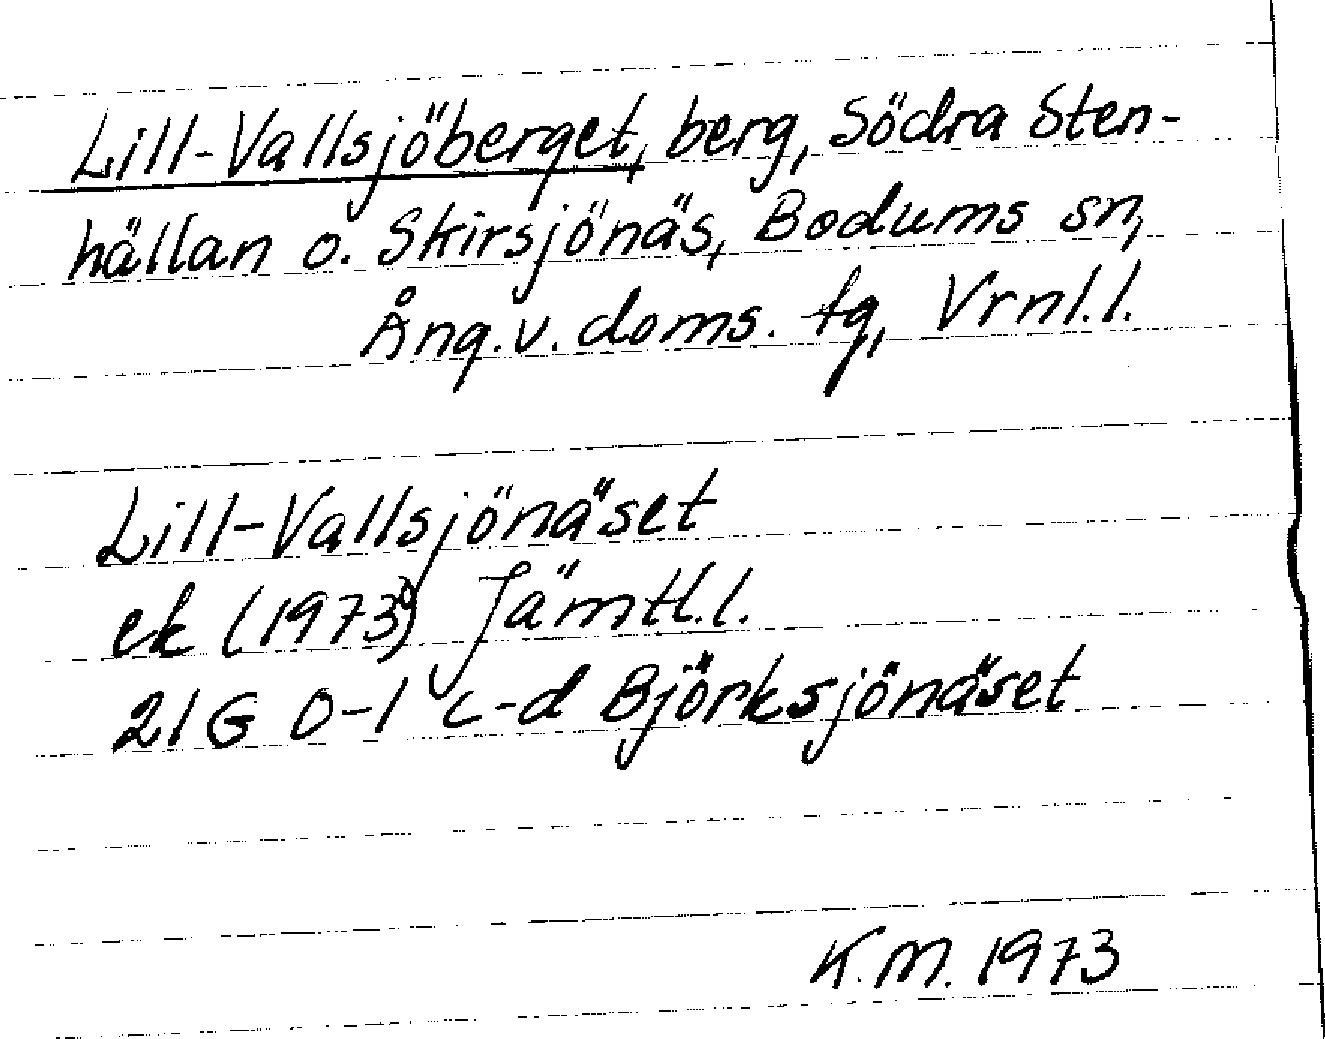 Lill-Vallsjöberget, berg, Södra Sten-
hällan o. Skirsjönäs, Bodums sn,
Ång.v. doms. tg, Vrnl.l.
Lill-Vallsjönäset
ek (1973) Jämtl.l.
21G 0-1 c-d Björksjönäset
K.M. 1973